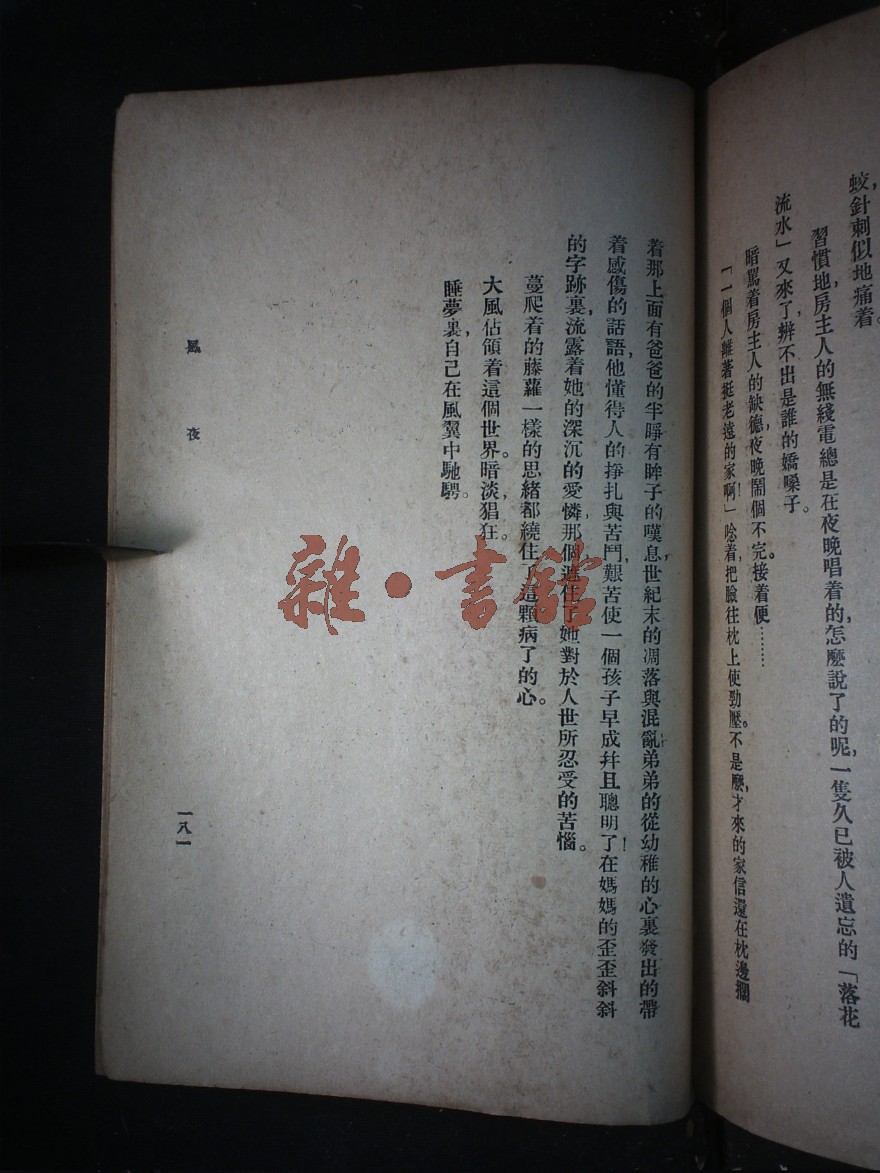 蛟針刺似地痛着。
習慣地,房主人的無綫電總是在夜晚唱着的,怎麽說了的呢,一隻久已被人遺忘的「落花
流水」又來了,辨不出是誰的嬌嗓子。
暗駡着房主人的缺德,夜晚鬧個不完。接着便………
「一個人離著挺老遠的家啊!」唸着,把臉往枕上使勁壓。不是麽,才來的家信還在枕邊擱
着,那上面有爸爸的半睜有眸子的嘆息,世紀末的凋落與混亂,弟弟的從幼稚的心裏發出的帶
着感傷的話語,他懂得人的掙扎與苦鬥,艱苦使一個孩子早成幷且聰明了!在媽媽的歪歪斜斜
的字跡裏,流露着她的深沉的愛憐,那個遮住了她對於人世所忍受的苦惱。
蔓爬着的藤蘿一樣的思緒都繞住了這顆病了的心。
大風佔領着這個世界。暗淡,猖狂。
睡夢裏,自己在風翼中馳騁。
風夜
一八一
雜·書館